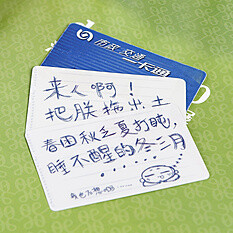 市政交通
一卡通
来人啊！
把朕拖出土
春困秋乏夏打盹，
睡不醒的冬三月